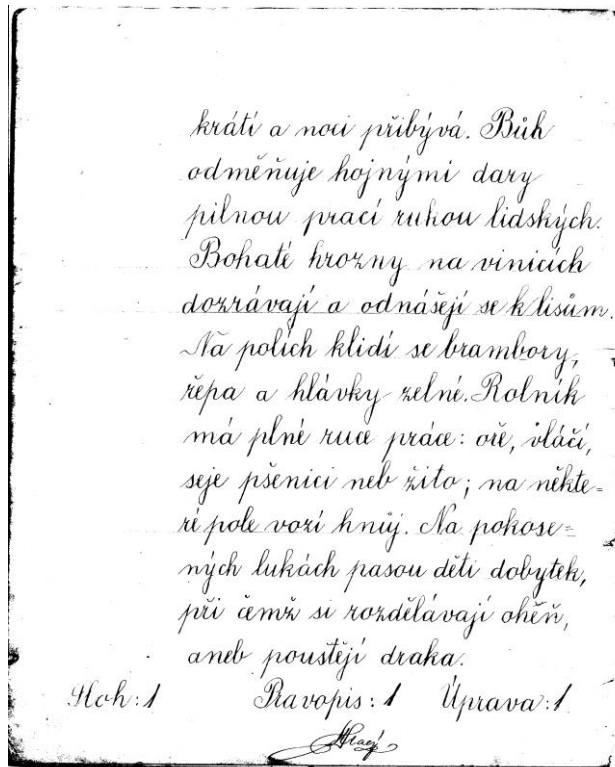 krátí a noci přibývá. Bůh
odměňuje hojnými dary
pilnou prací rukou lidských.
Bohaté hrozny na vinicích
dozrávají a odnášejí se k lisům.
Na polích klidí se brambory,
řepa a hlávky zelné. Rolník
má plné ruce práce: oře, vláčí,
seje pšenici neb žito; na někte=
ré pole vozí hnůj. Na pokose=
ných lukách pasou děti dobytek,
při čemž si rozdělávají oheň,
aneb pouštějí draka.
Sloh: 1 Pravopis: 1 Úprava: 1